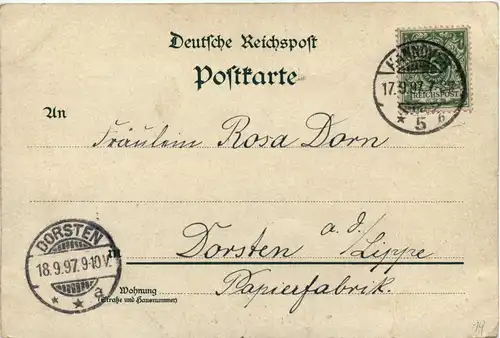 Deutsche Reichspost
Postkarte
HANNOVER
17.9.97.7
REICHSPOST
* 5 b
An
Fräulein Rosa Dorn
in Dorsten a. d./Lippe
Papierfabrik.
DORSTEN
18.9.97.9-10V.
* * a
Wohnung
(Straße und Hausnummer)